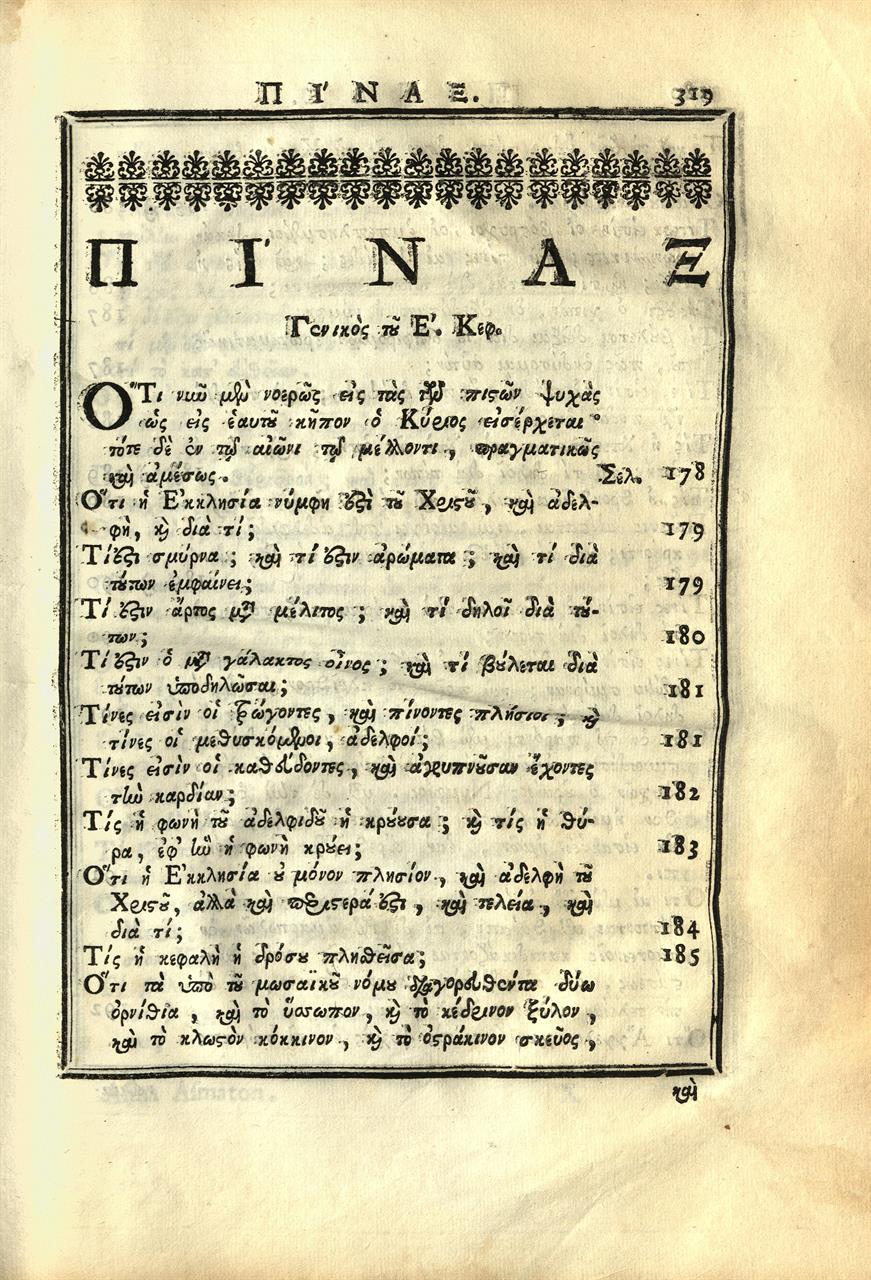 Π Ι Ν Α Ξ. 319
Π Ι Ν Α Ξ
Γενικὸς τοῦ Ε΄. Κεφ.
Ὅτι νῦν μὲν νοερῶς εἰς τὰς τῶν πιστῶν ψυχὰς
ὡς εἰς ἑαυτοῦ κῆπον ὁ Κύριος εἰσέρχεται·
τότε δὲ ἐν τῷ αἰῶνι τῷ μέλλοντι, πραγματικῶς
καὶ ἀμέσως. Σέλ. 178
Ὅτι ἡ Ἐκκλησία νύμφη ἐστὶ τοῦ Χριστοῦ, καὶ ἀδελ-
φὴ, καὶ διὰ τί; 179
Τί ἐστι σμύρνα; καὶ τί ἐστιν ἀρώματα; καὶ τί διὰ
τούτων ἐμφαίνει; 179
Τί ἐστιν ἄρτος μετὰ μέλιτος; καὶ τί δηλοῖ διὰ τού-
των; 180
Τί ἐστιν ὁ μετὰ γάλακτος οἶνος; καὶ τί βούλεται διὰ
τούτων ὑποδηλῶσαι; 181
Τίνες εἰσὶν οἱ τρώγοντες, καὶ πίνοντες πλησίοι; καὶ
τίνες οἱ μεθυσκόμενοι, ἀδελφοί; 181
Τίνες εἰσὶν οἱ καθεύδοντες, καὶ ἀγρυπνοῦσαν ἔχοντες
τὴν καρδίαν; 182
Τίς ἡ φωνὴ τοῦ ἀδελφιδοῦ ἡ κρούουσα; καὶ τίς ἡ θύ-
ρα, ἐφ' ἣν ἡ φωνὴ κρούει; 183
Ὅτι ἡ Ἐκκλησία οὐ μόνον πλησίον, καὶ ἀδελφὴ τοῦ
Χριστοῦ, ἀλλὰ καὶ περιστερά ἐστι, καὶ τελεία, καὶ
διὰ τί; 184
Τίς ἡ κεφαλὴ ἡ δρόσου πληθεῖσα; 185
Ὅτι τὰ ὑπὸ τοῦ μωσαϊκοῦ νόμου διαγορευθέντα δύω
ὀρνίθια, καὶ τὸ ὕσσωπον, καὶ τὸ κέδρινον ξύλον,
καὶ τὸ κλωστὸν κόκκινον, καὶ τὸ ὀστράκινον σκεῦος,
καὶ